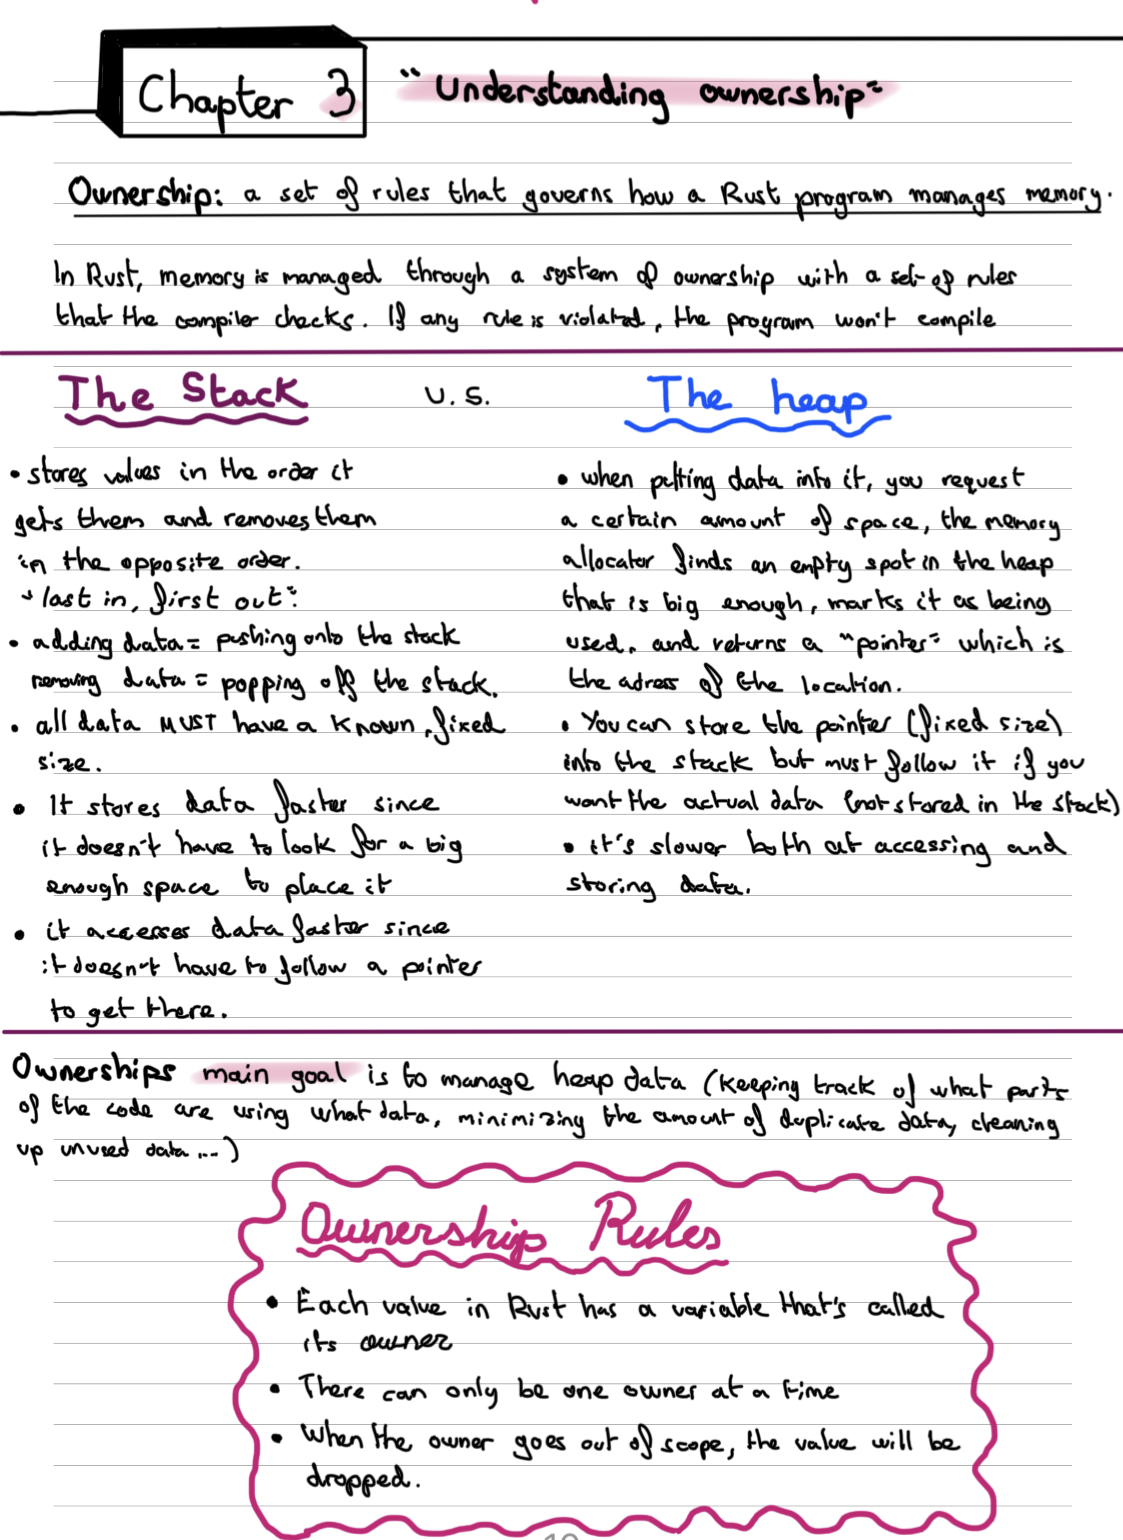 Chapter 3
"Understanding ownership"
Ownership: a set of rules that governs how a Rust program manages memory.
In Rust, memory is managed through a system of ownership with a set of rules
that the compiler checks. If any rule is violated, the program won't compile
The Stack
V.S.
The heap
• stores values in the order it
gets them and removes them
in the opposite order.
"last in, first out".
• adding data = pushing onto the stack
removing data = popping off the stack.
• all data MUST have a known, fixed
size.
• It stores data faster since
it doesn't have to look for a big
enough space to place it
• it accesses data faster since
it doesn't have to follow a pointer
to get there.
• when putting data into it, you request
a certain amount of space, the memory
allocator finds an empty spot in the heap
that is big enough, marks it as being
used, and returns a "pointer" which is
the adress of the location.
• You can store the pointer (fixed size)
into the stack but must follow it if you
want the actual data (not stored in the stack)
• it's slower both at accessing and
storing data.
Ownerships main goal is to manage heap data (Keeping track of what parts
of the code are using what data, minimizing the amount of duplicate data, cleaning
up unused data ...)
Ownership Rules
• Each value in Rust has a variable that's called
its owner
• There can only be one owner at a time
• When the owner goes out of scope, the value will be
dropped.